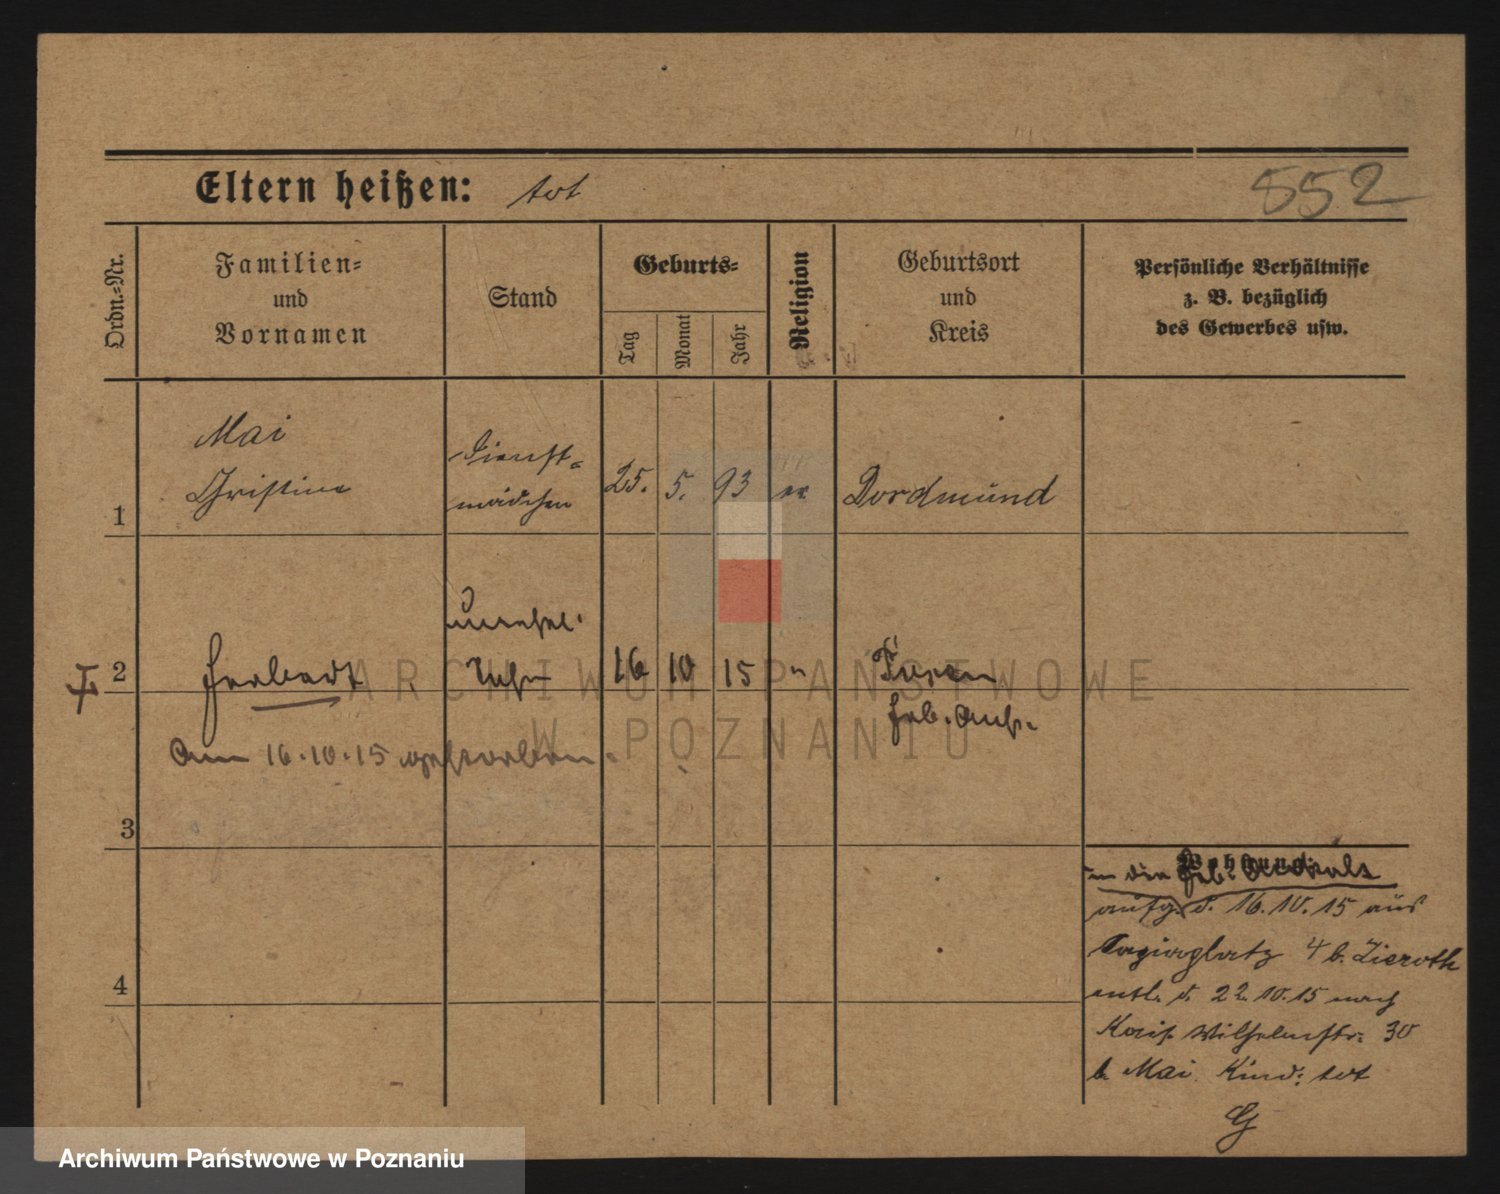 Eltern heißen: tot
852
Ordn.-Nr.
Familien-
und
Vornamen
Stand
Geburts-
Tag
Monat
Jahr
Religion
Geburtsort
und
Kreis
Persönliche Verhältnisse
z. B. bezüglich
des Gewerbes usw.
1
Mai
Christine
Dienst-
mädchen
25. 5. 93
Dordmund
2
unehel.
Sohn
16 10 15
Posen
Am 16.10.15 gestorben.
3
Wohnung:
in die
aufg. d. 16.10.15 aus
4 b. Zieroth
entl. d. 22.10.15 nach
Kais. Wilhelmstr. 30
b. Mai. Kind: tot
4
ARCHIWUM PAŃSTWOWE
W POZNANIU
Archiwum Państwowe w Poznaniu